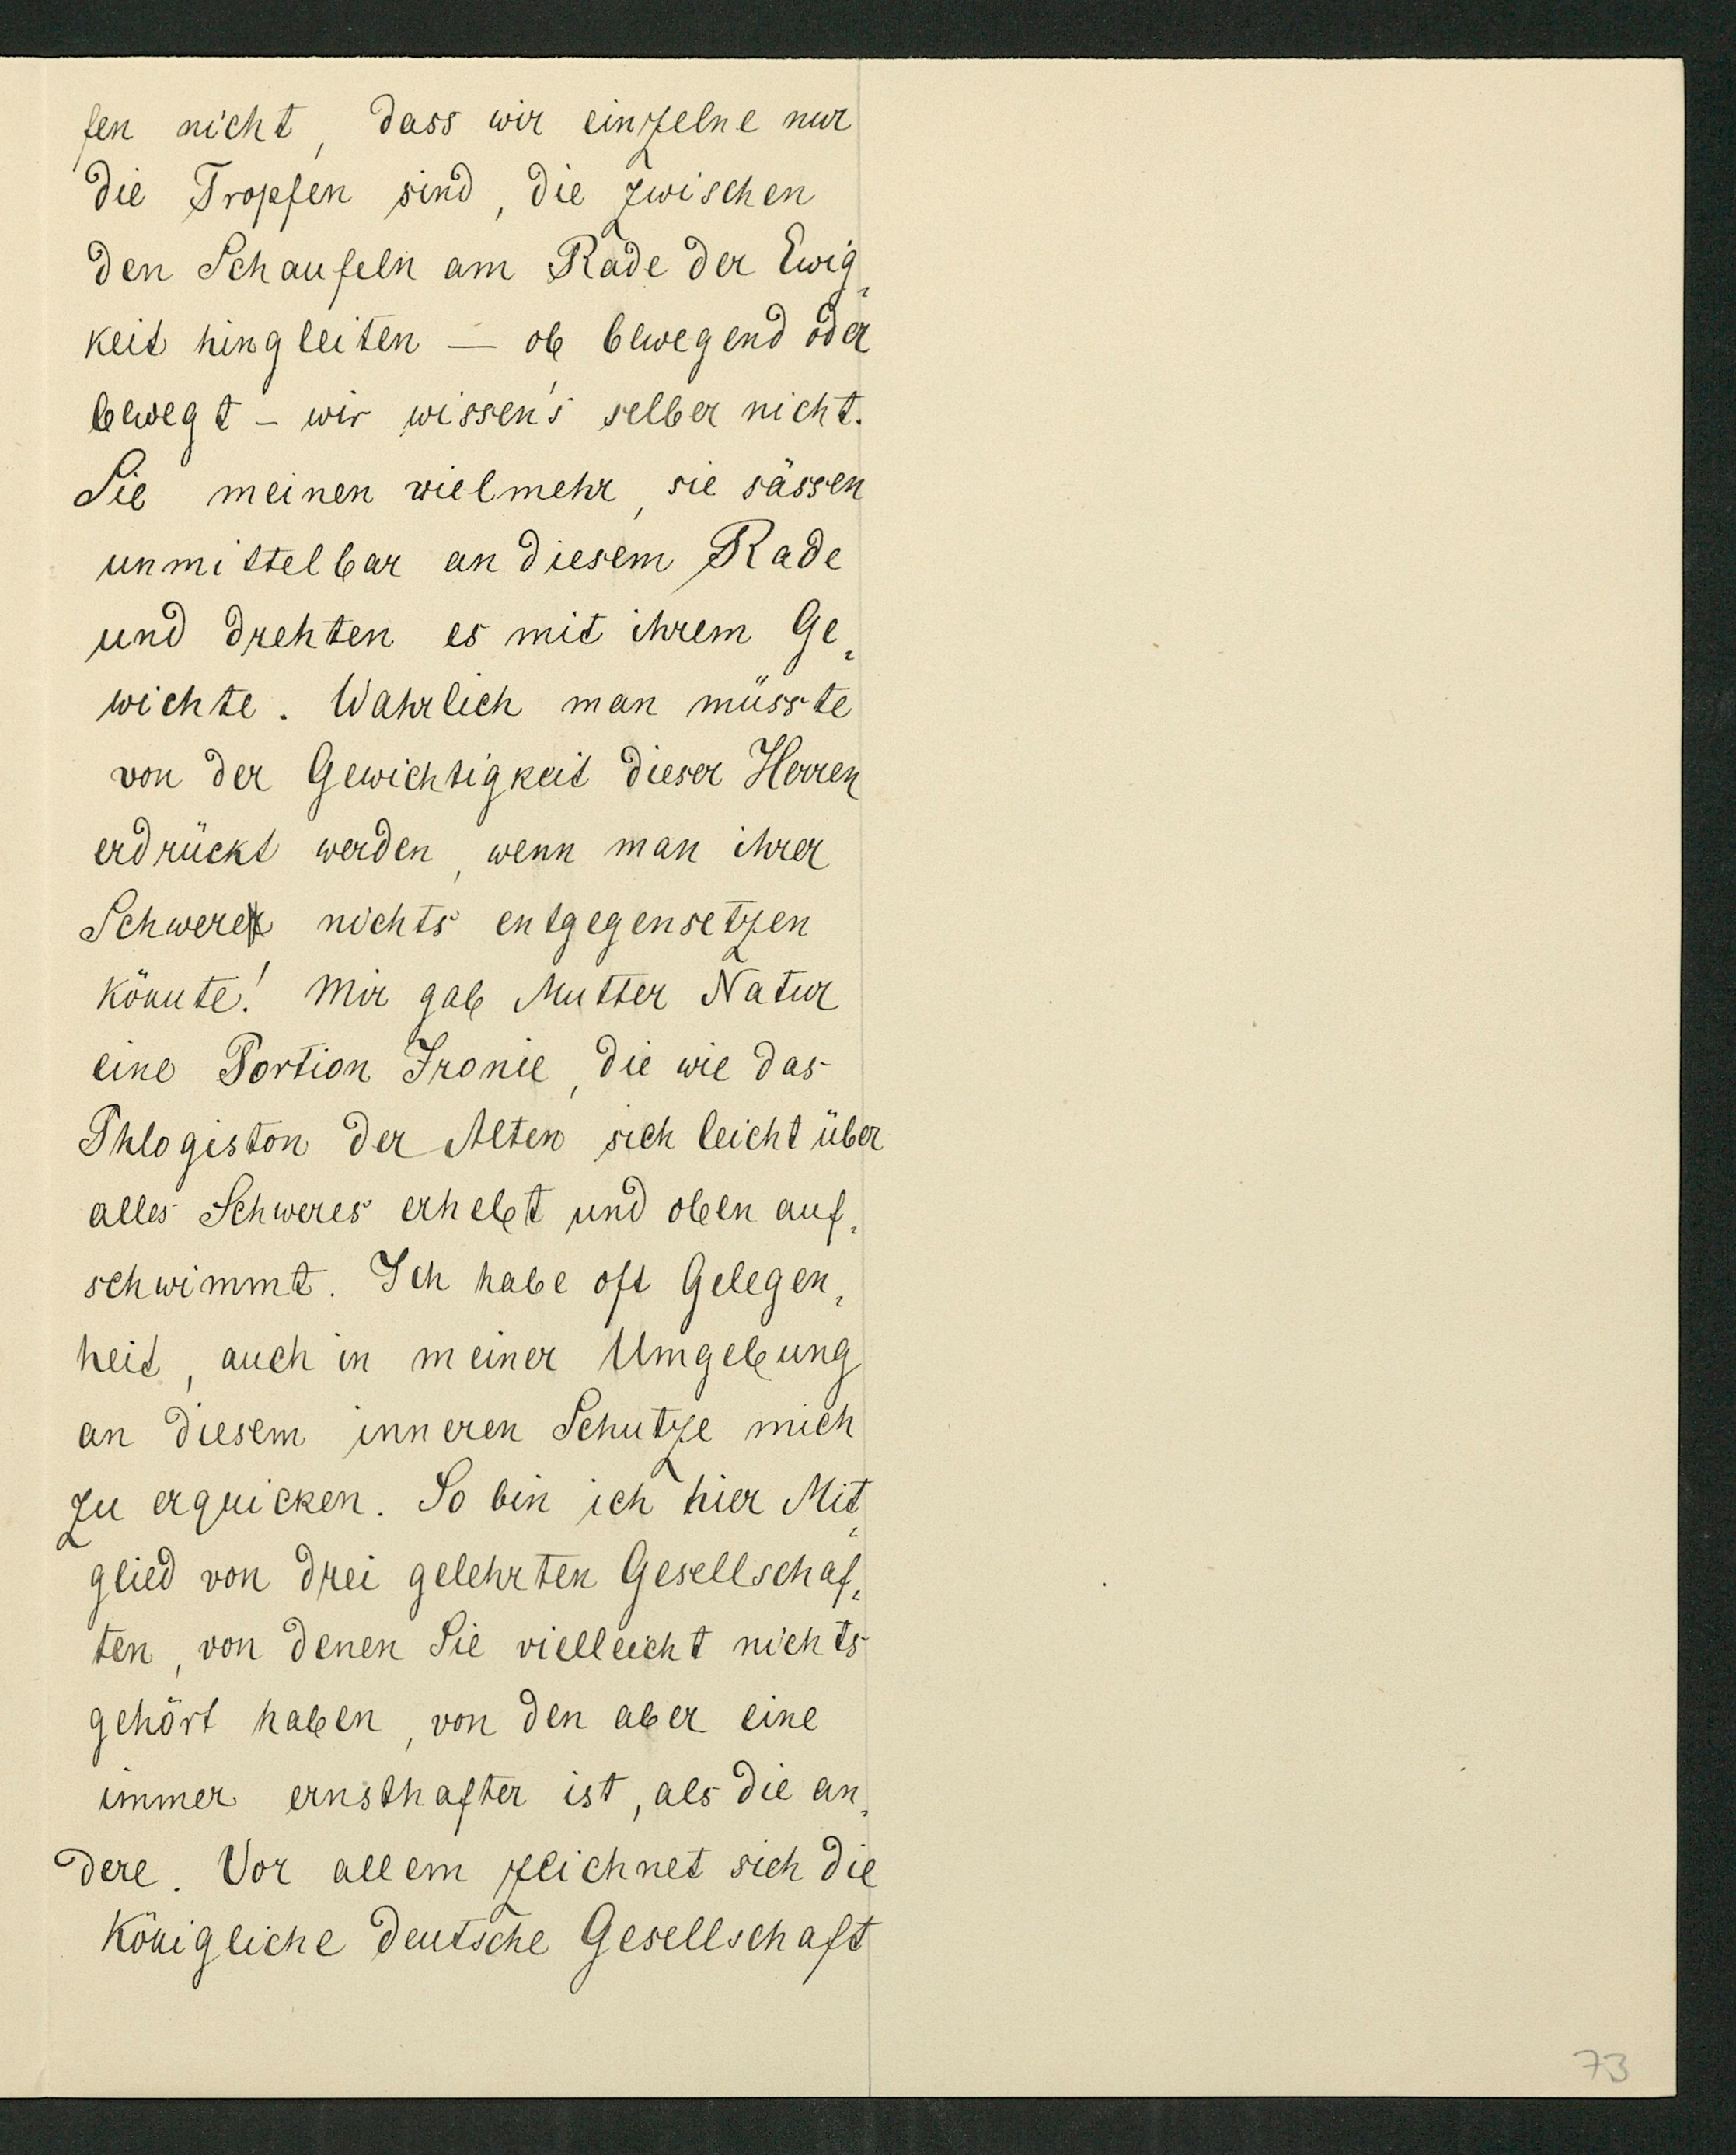 fen nicht, dass wir einzelne nur
die Tropfen sind, die zwischen
den Schaufeln am Rade der Ewig-
keit hingleiten — ob bewegend oder
bewegt – wir wissen's selber nicht.
Sie meinen vielmehr, sie sässen
unmittelbar an diesem Rade
und drehten es mit ihrem Ge-
wichte. Wahrlich man müsste
von der Gewichtigkeit dieser Herren
erdrückt werden, wenn man ihrer
Schwere nichts entgegensetzen
könnte! Mir gab Mutter Natur
eine Portion Ironie, die wie das
Phlogiston der Alten sich leicht über
alles Schweres erhebt und oben auf-
schwimmt. Ich habe oft Gelegen-
heit, auch in meiner Umgebung
an diesem inneren Schutze mich
zu erquicken. So bin ich hier Mit-
glied von drei gelehrten Gesellschaf-
ten, von denen Sie vielleicht nichts
gehört haben, von den aber eine
immer ernsthafter ist, als die an-
dere. Vor allem zeichnet sich die
Königliche deutsche Gesellschaft
73